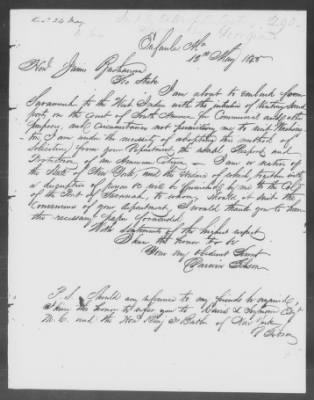 Eufaula Ala
15th May 1845
Hon. James Buchanan
I am about to embark from
Savannah for the West Indies with the intention of visiting several
ports, on the Coast of South America for Commercial and other
purposes, and circumstances not permitting me to visit Washing
ton, I am under the necessity of adopting this method of
soliciting from your Department, the usual Passport and
Protection of an American Citizen — I am a native of
the State of New York, and the evidence of which together with
a description of my person will be furnished by me to the Col.
of the Port of Savannah, to whom, should it suit the
convenience of your department, I would thank you to have
the necessary paper forwarded.
With sentiments of the highest respect
I have the honor to be
Your very obedient Servt
P. S. Should any reference to my friends be required,
I have the honor to refer you to David L Seymour Esq
M. C. and the Hon. Benj F Butler of New York